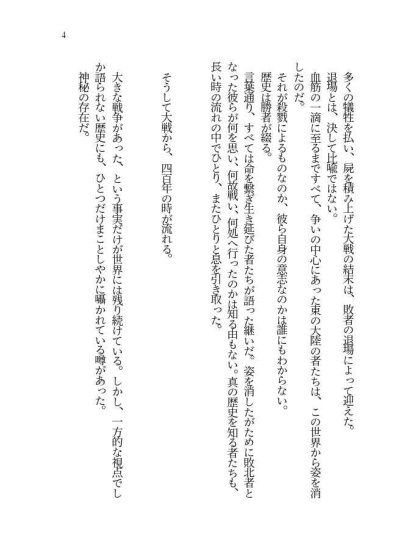 4
多くの犠牲を払い、屍を積み上げた大戦の結末は、敗者の退場によって迎えた。
退場とは、決して比喩ではない。
血筋の一滴に至るまですべて、争いの中心にあった東の大陸の者たちは、この世界から姿を消
したのだ。
それが殺戮によるものなのか、彼ら自身の意志なのかは誰にもわからない。
歴史は勝者が綴る。
言葉通り、すべては命を繋ぎ生き延びた者たちが語った継いだ。姿を消したがために敗北者と
なった彼らが何を思い、何故戦い、何処へ行ったのかは知る由もない。真の歴史を知る者たちも、
長い時の流れの中でひとり、またひとりと息を引き取った。
そうして大戦から、四百年の時が流れる。
大きな戦争があった、という事実だけが世界には残り続けている。しかし、一方的な視点でし
か語られない歴史にも、ひとつだけまことしやかに囁かれている噂があった。
神秘の存在だ。